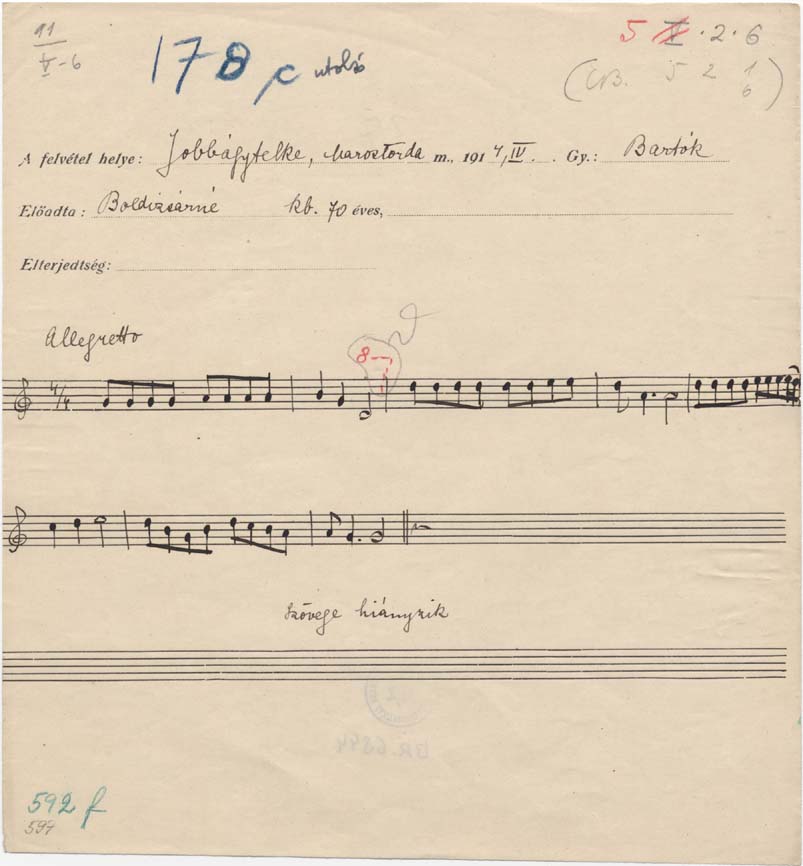 11
V-6
178 c utolsó
5 V.2.6
(CB. 5 2 1
6)
A felvétel helye: Jobbágytelke, Marostorda m., 1914, IV. Gy.: Bartók
Előadta: Boldizsárné kb. 70 éves,
Elterjedtség:
Allegretto
8
4/4
szövege hiányzik
BR. 6844
592 f
597